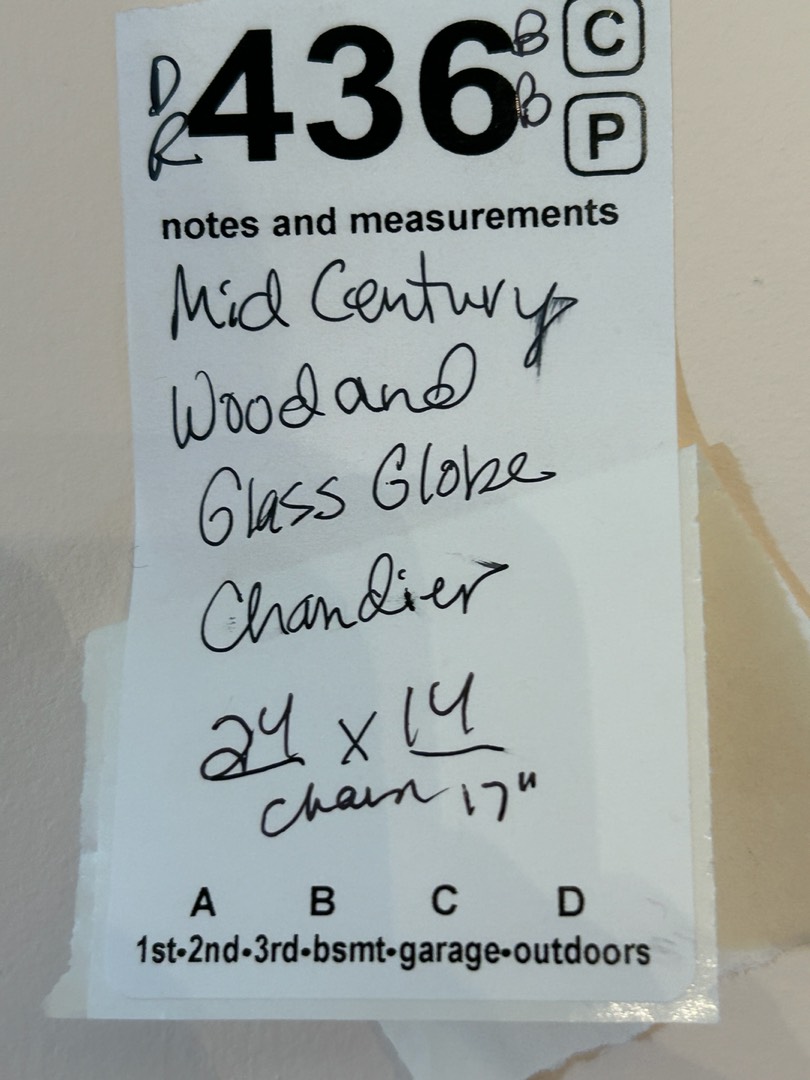 D 436 B C
R B P
notes and measurements
Mid Century
Wood and
Glass Globe
Chandier
24 x 14
chain 17"
A B C D
1st•2nd•3rd•bsmt•garage•outdoors